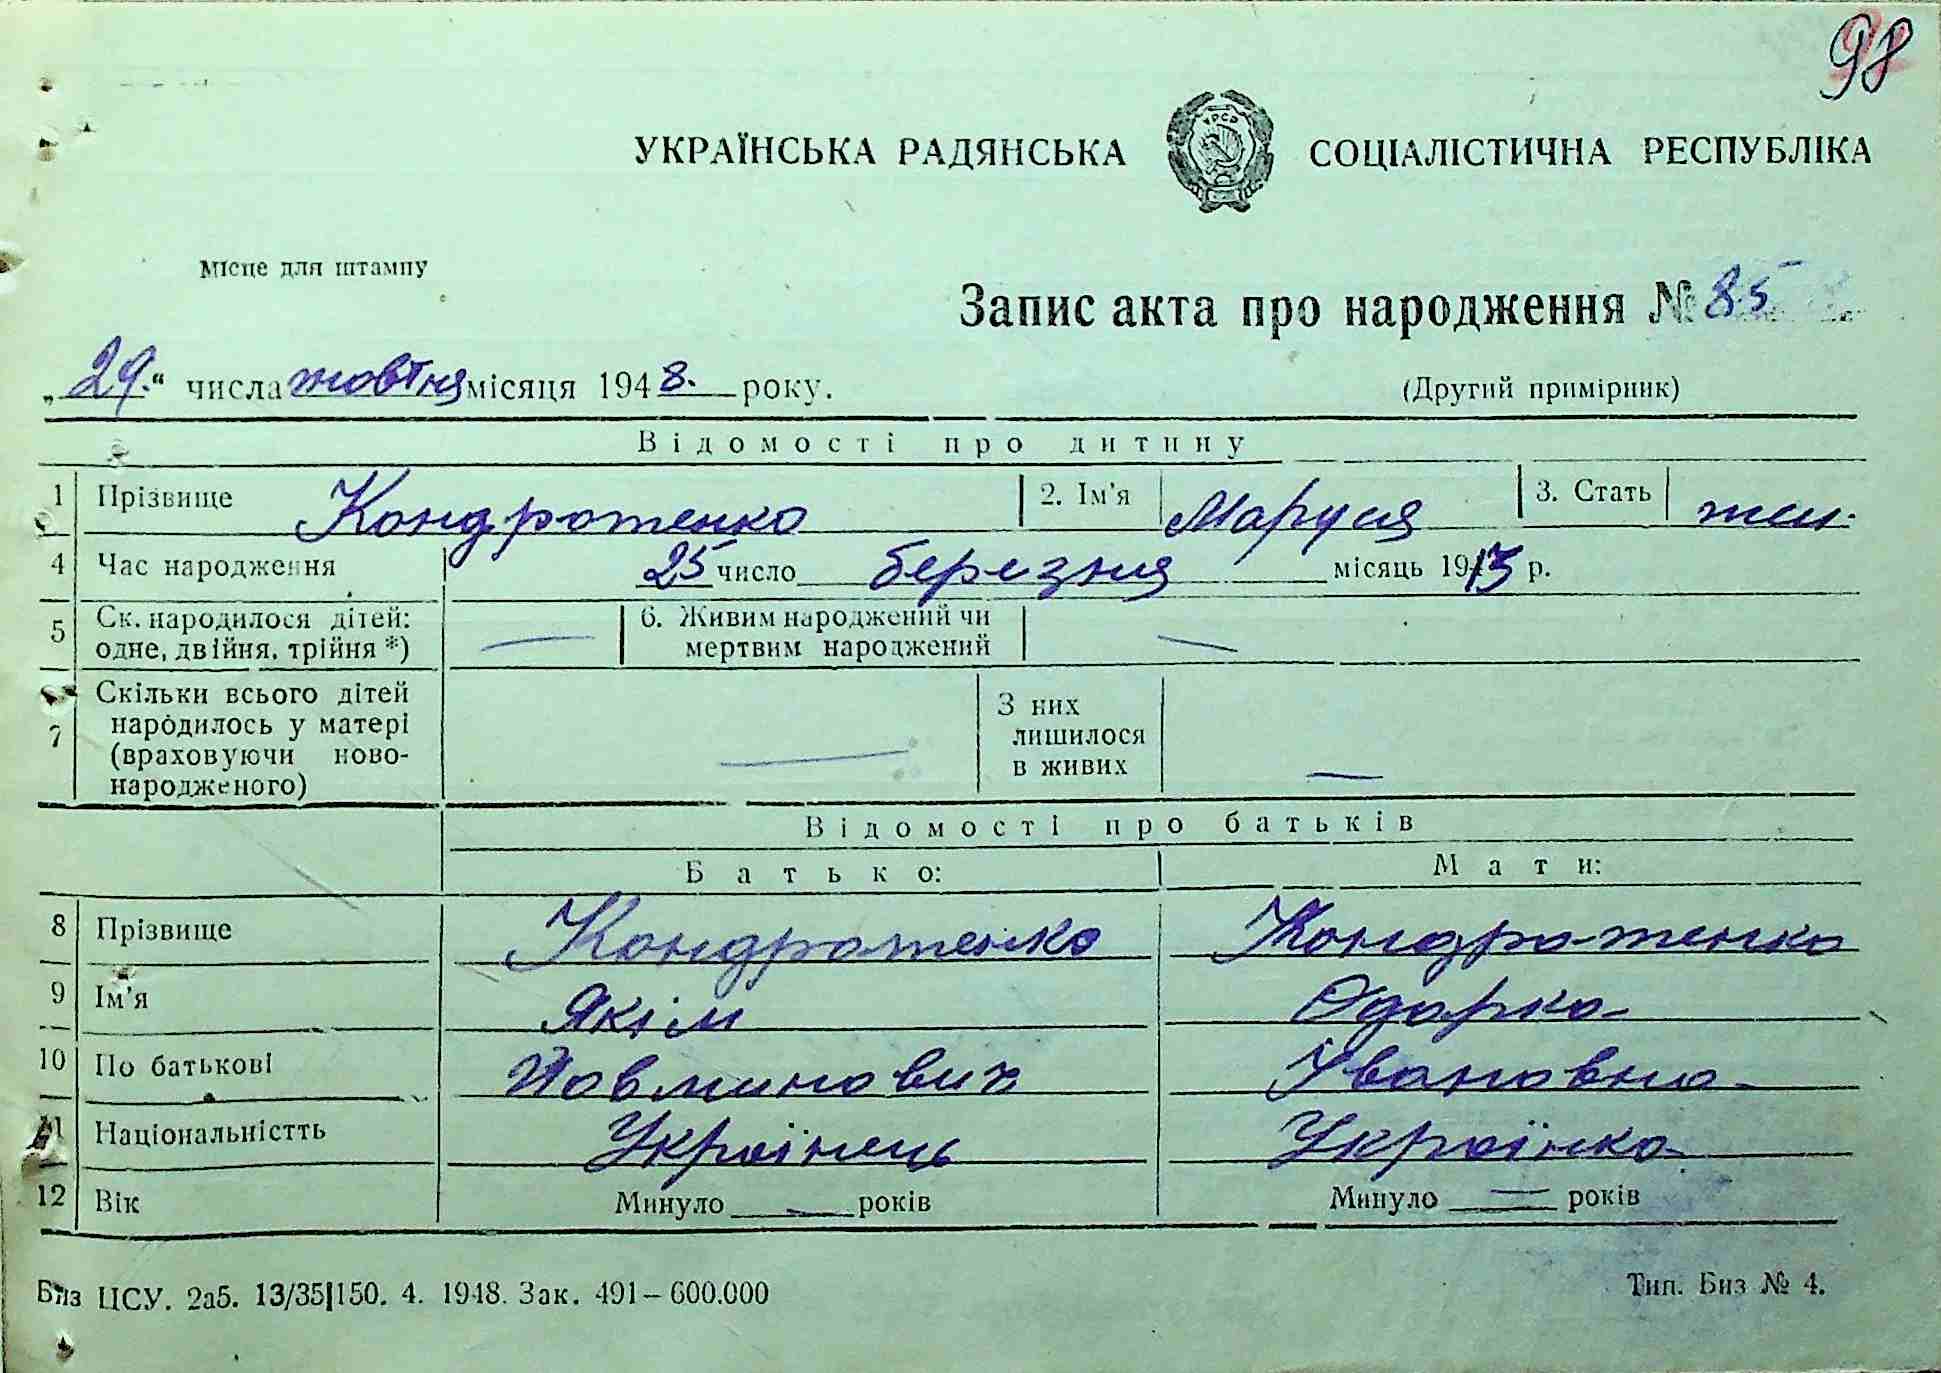 98
УКРАЇНСЬКА РАДЯНСЬКА СОЦІАЛІСТИЧНА РЕСПУБЛІКА
УРСР
Місце для штампу
Запис акта про народження № 85
„29.“ числа жовтня місяця 1948. року.
(Другий примірник)
Відомості про дитину
1 Прізвище Кондратенко 2. Ім'я Маруся 3. Стать жін.
4 Час народження 25 число березня місяць 1913 р.
5 Ск. народилося дітей: — 6. Живим народжений чи —
одне, двійня, трійня *) мертвим народжений
7 Скільки всього дітей — З них —
народилось у матері лишилося
(враховуючи ново- в живих
народженого)
Відомості про батьків
Батько: Мати:
8 Прізвище Кондратенко Кондратенко
9 Ім'я Якім Одарка
10 По батькові Івановна
11 Національністть Українець Українка
12 Вік Минуло — років Минуло — років
Биз ЦСУ. 2аб. 13/35|150. 4. 1948. Зак. 491—600.000 Тип. Биз № 4.